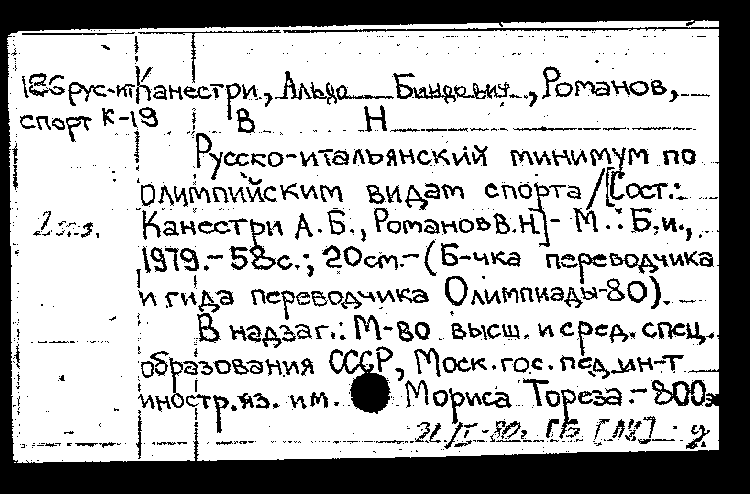 186 рус-ит Канестри, Альдо Биндович, Романов,
спорт К-19 В Н
Русско-итальянский минимум по
олимпийским видам спорта /[Сост.:
2 экз. Канестри А.Б., Романов В.Н]- М.: Б.и.,
1979.- 58с.; 20см.- (Б-чка переводчика
и гида переводчика Олимпиады-80).
В надзаг.: М-во высш. и сред. спец.
образования СССР, Моск.гос.пед.ин-т
иностр.яз. им. Мориса Тореза.- 800э